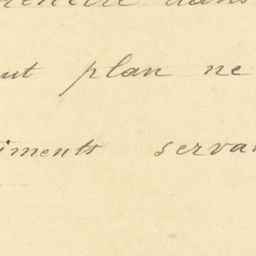 dans
ut plan ne
iments serva